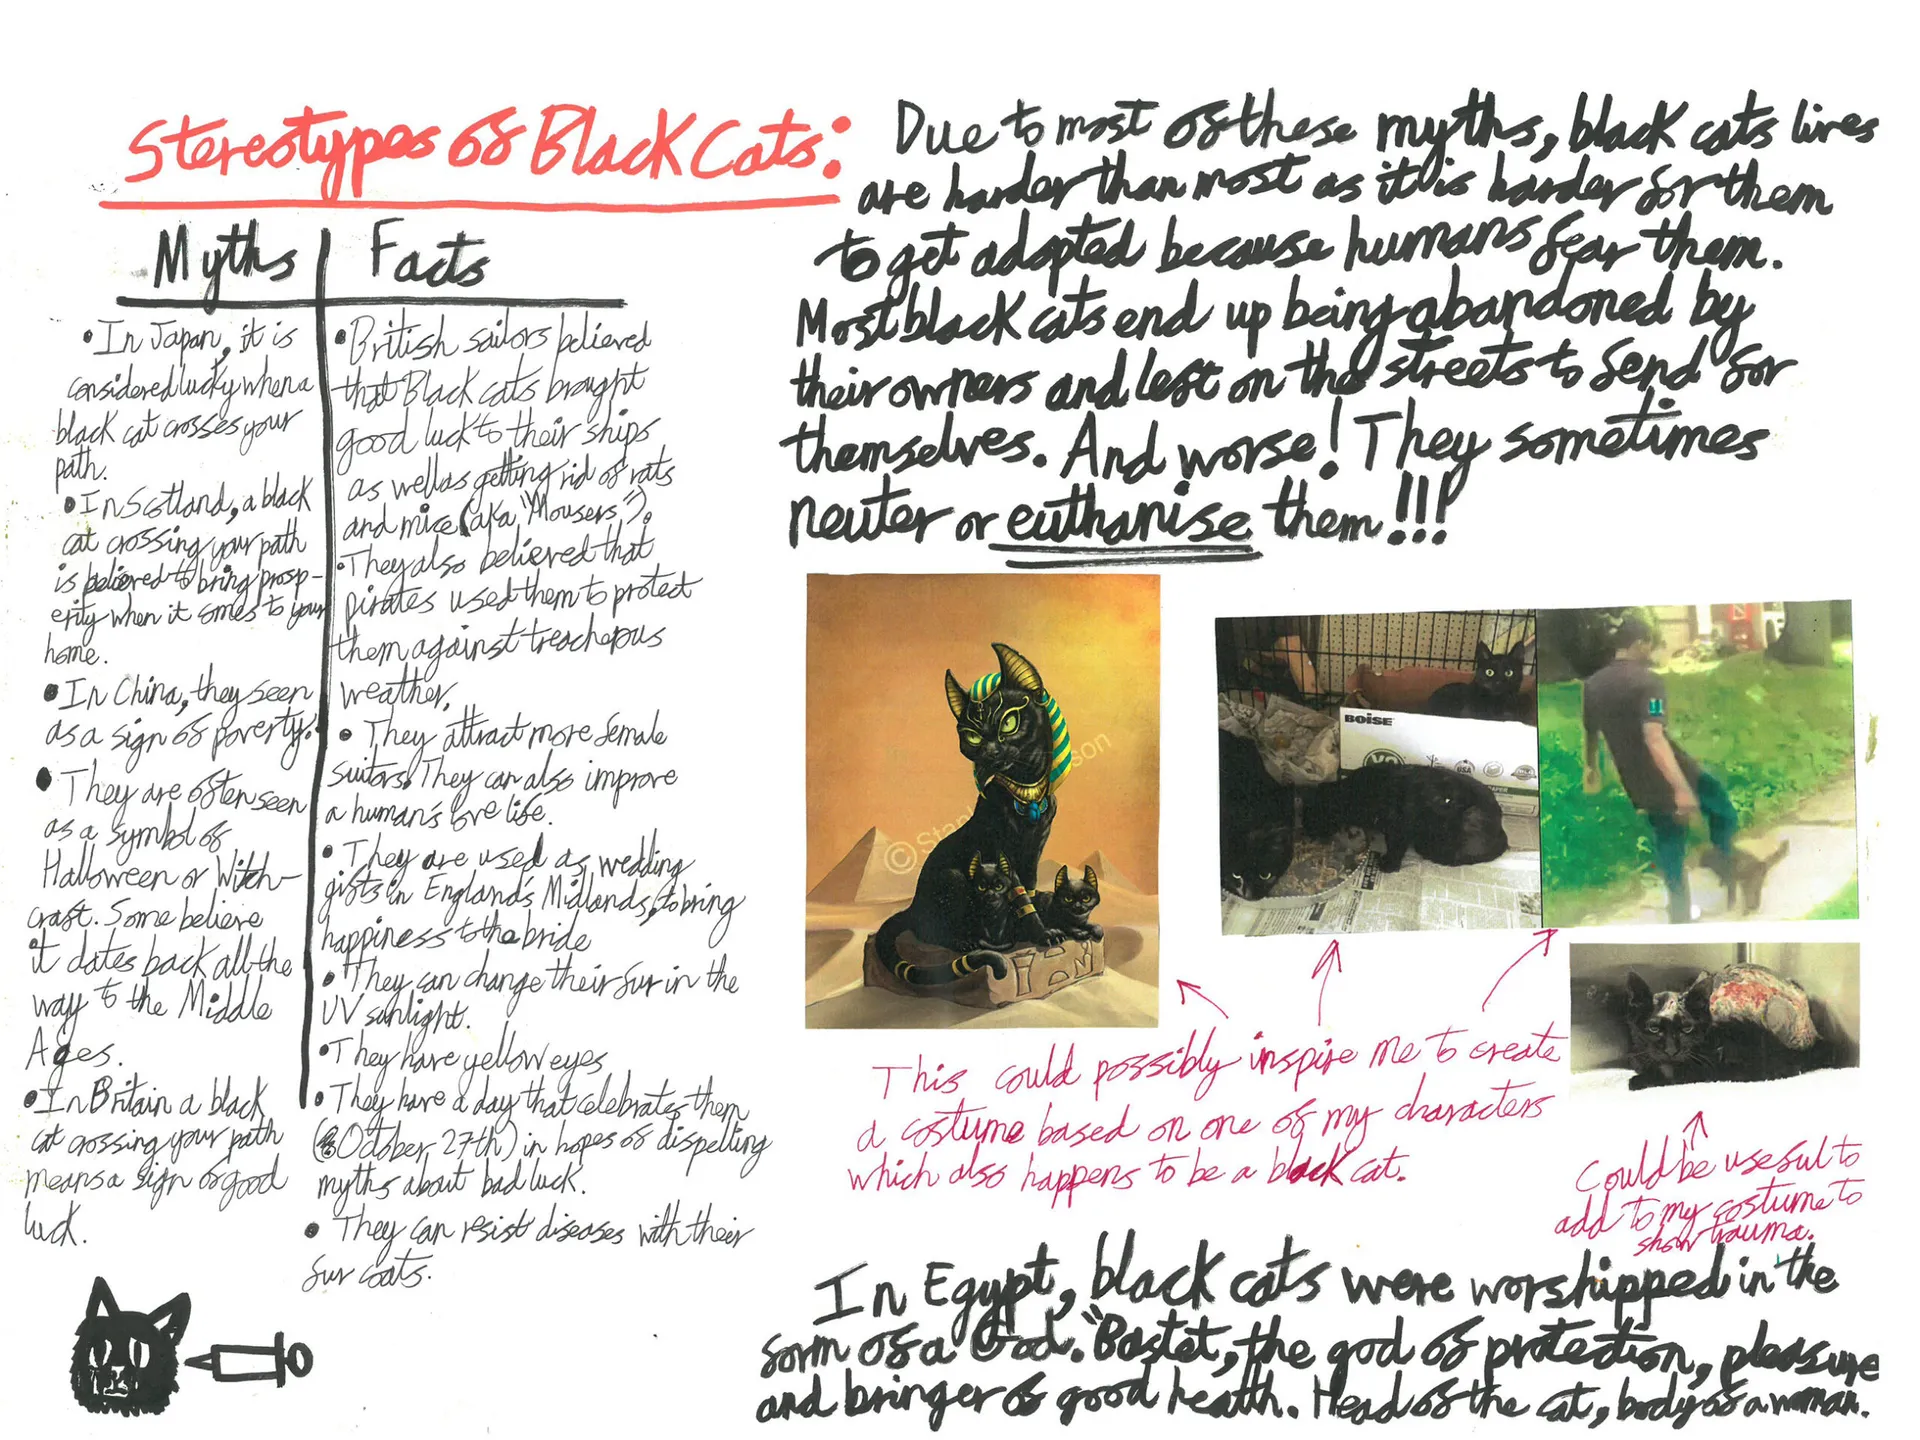 Stereotypes of Black Cats:
Myths
• In Japan, it is
considered lucky when a
black cat crosses your
path.
• In Scotland, a black
cat crossing your path
is believed to bring prosp-
erity when it comes to your
home.
• In China, they seen
as a sign of poverty.
• They are often seen
as a symbol of
Halloween or Witch-
craft. Some believe
it dates back all the
way to the Middle
Ages.
• In Britain a black
cat crossing your path
means a sign of good
luck.
Facts
• British sailors believed
that Black cats brought
good luck to their ships
as well as getting rid of rats
and mice (aka "Mousers").
• They also believed that
pirates used them to protect
them against treacherous
weather,
• They attract more female
suitors. They can also improve
a human's love life.
• They are used as wedding
gifts in England's Midlands, to bring
happiness to the bride
• They can change their fur in the
UV sunlight.
• They have yellow eyes
• They have a day that celebrates them
(October 27th) in hopes of dispelling
myths about bad luck.
• They can resist diseases with their
fur coats.
Due to most of these myths, black cats lives
are harder than most as it is harder for them
to get adopted because humans fear them.
Most black cats end up being abandoned by
their owners and left on the streets to fend for
themselves. And worse! They sometimes
neuter or euthanise them!!!
BOISE
This could possibly inspire me to create
a costume based on one of my characters
which also happens to be a black cat.
Could be useful to
add to my costume to
show trauma.
In Egypt, black cats were worshipped in the
form of a God. "Bastet, the god of protection, pleasure
and bringer of good health. Head of the cat, body of a woman.